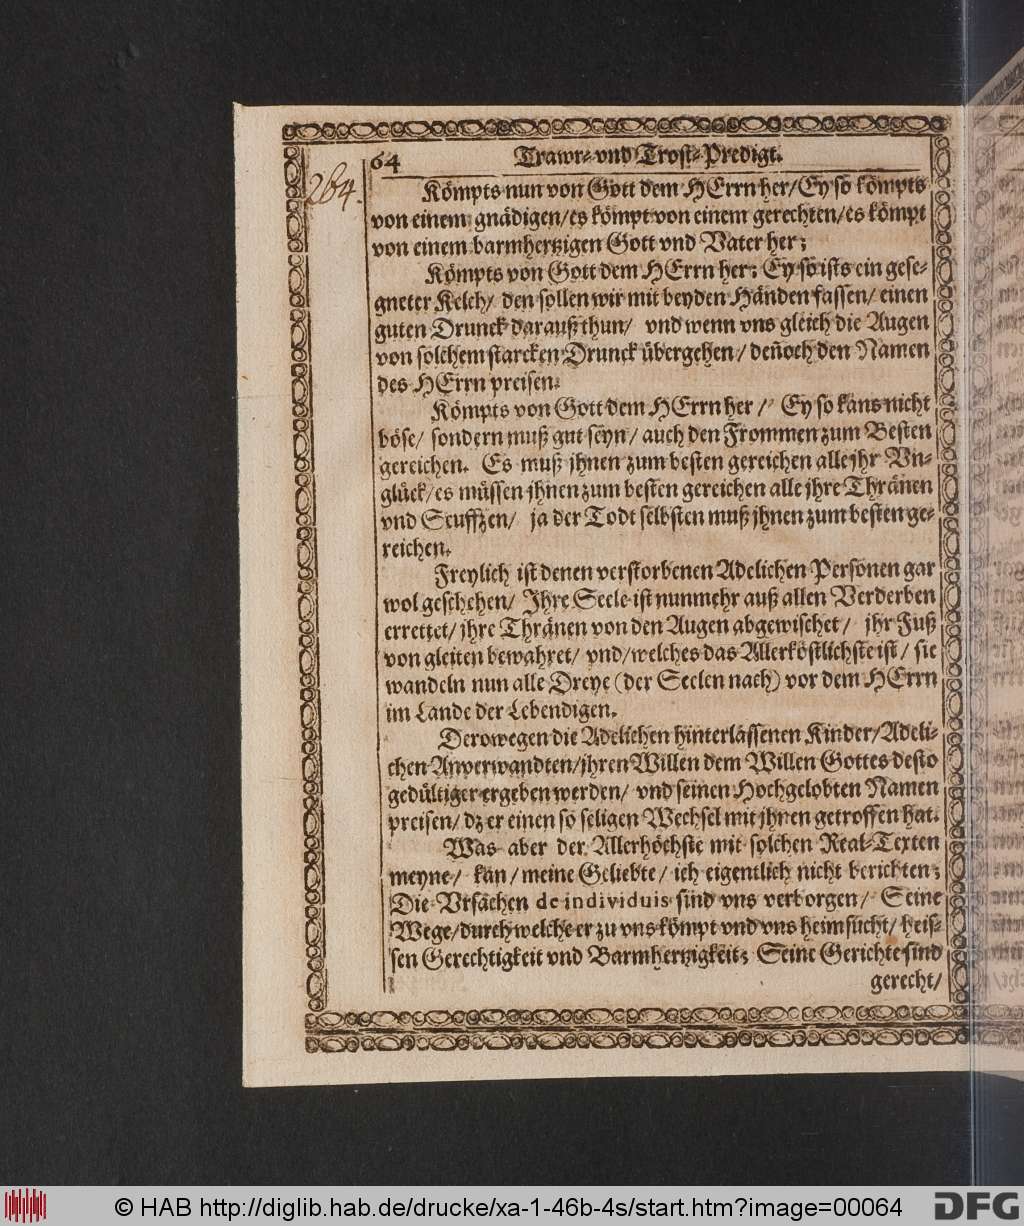 64 Trawr- vnd Trost-Predigt.
264.
Kömpts nun von Gott dem HErrn her/ Ey so kömpts
von einem gnädigen/ es kömpt von einem gerechten/ es kömpt
von einem barmhertzigen Gott vnd Vater her;
Kömpts von Gott dem HErrn her; Ey so ists ein gese-
gneter Kelch/ den sollen wir mit beyden Händen fassen/ einen
guten Drunck darauß thun/ vnd wenn vns gleich die Augen
von solchem starcken Drunck übergehen/ deñoch den Namen
des HErrn preisen.
Kömpts von Gott dem HErrn her/ Ey so kans nicht
böse/ sondern muß gut seyn/ auch den Frommen zum Besten
gereichen. Es muß jhnen zum besten gereichen alle jhr Vn-
glück/ es müssen jhnen zum besten gereichen alle jhre Thränen
vnd Seufftzen/ ja der Todt selbsten muß jhnen zum besten ge-
reichen.
Freylich ist denen verstorbenen Adelichen Personen gar
wol geschehen/ Ihre Seele ist nunmehr auß allen Verderben
errettet/ jhre Thränen von den Augen abgewischet/ jhr Fuß
von gleiten bewahret/ vnd/ welches das Allerköstlichste ist/ sie
wandeln nun alle Dreye (der Seelen nach) vor dem HErrn
im Lande der Lebendigen.
Derowegen die Adelichen hinterlassenen Kinder/ Adeli-
chen Anverwandten/ jhren Willen dem Willen Gottes desto
gedültiger ergeben werden/ vnd seinen Hochgelobten Namen
preisen/ dz er einen so seligen Wechsel mit jhnen getroffen hat.
Was aber der Allerhöchste mit solchen Real-Texten
meyne/ kan/ meine Geliebte/ ich eigentlich nicht berichten;
Die Vrsachen de individuis sind vns verborgen/ Seine
Wege/ durch welche er zu vns kömpt vnd vns heimsucht/ heis-
sen Gerechtigkeit vnd Barmhertzigkeit; Seine Gerichte sind
gerecht/
© HAB http://diglib.hab.de/drucke/xa-1-46b-4s/start.htm?image=00064
DFG